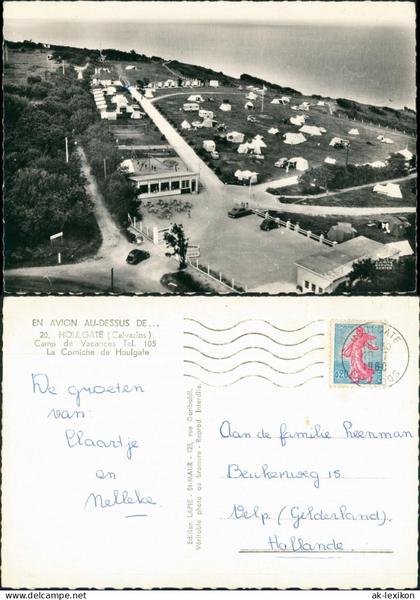 EN AVION AU-DESSUS DE...
20. HOULGATE (Calvados)
Camp de Vacances Tel. 105
La Corniche de Houlgate
De groeten
van
Klaartje
en
Nelleke.
Edition LAPIE - St-MAUR - 123, rue Garibaldi.
Véritable photo au bromure - Reprod. Interdite.
Aan de familie Peenman
Beukenweg 15
Velp (Gelderland)
Hollande
0,20
www.ak-lexikon.de
ak-lexikon